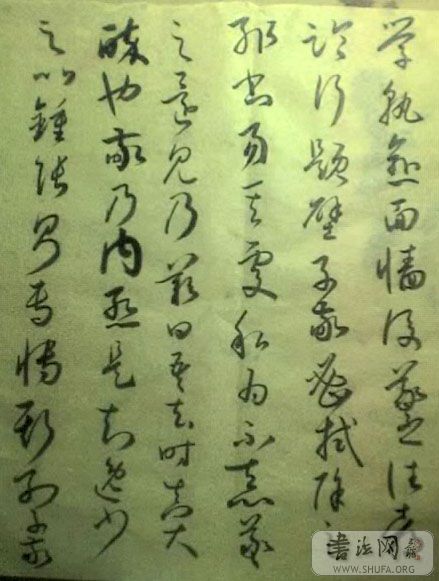 学孰愈面墻後羲之往都
臨行題壁子敬密拭除之
輒書易其處私爲不惡羲
之還見乃歎曰吾去時真大
醉也敬乃内慙是知逸少
之比鍾張則專博斯別子敬
書法网
WWW.SHUFA.ORG